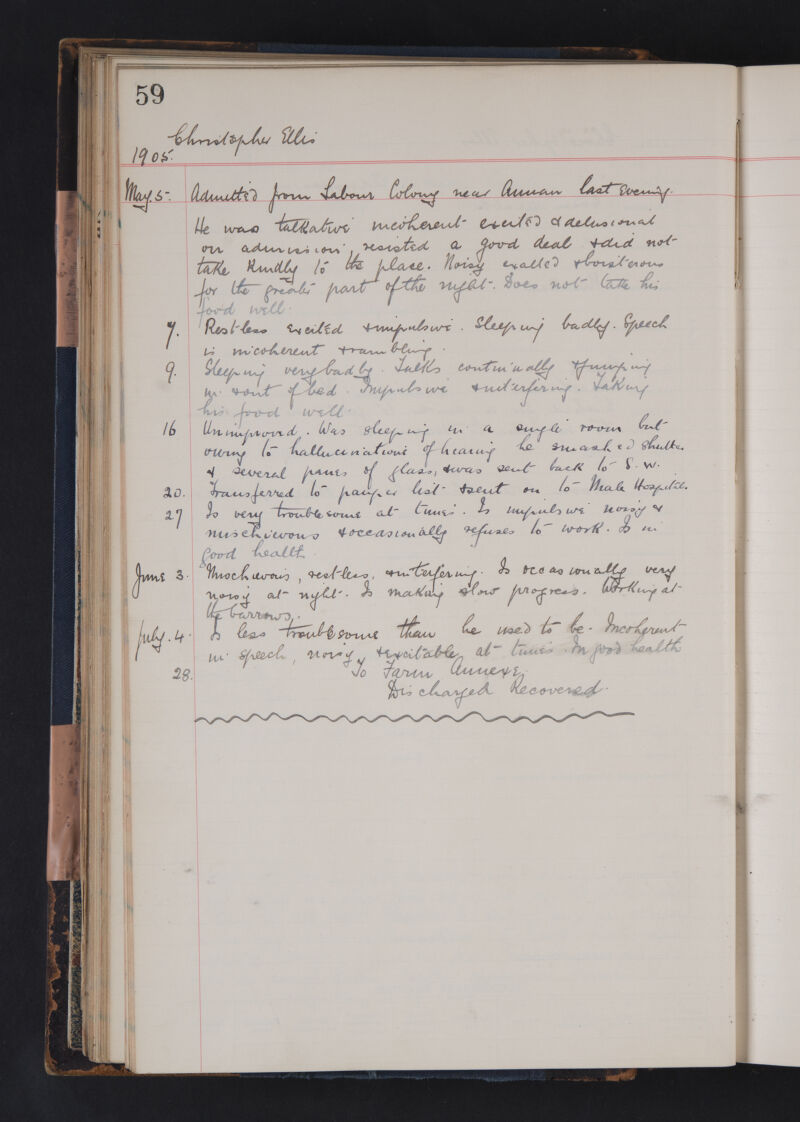 59
Christopher Ellis
1905.
May 5. Admitted from Labour Colony near Annan last Evening.
He was talkative incoherent excited & delusional
on admission, resisted a good deal & did not
take kindly to the place. Noisy exalted & boisterous
for the greater part of the night. Does not take his
food well.
7. Restless excited & impulsive. Sleeping badly. Speech
is incoherent & rambling.
9. Sleeping very badly. Talks continually & jumping
in & out of bed. Impulsive & interfering. Taking
his food well.
16 Unimproved. Was sleeping in a single room but
owing to hallucinations of hearing he smashed shutter
& several panes of glass, & was sent back to S. W.
20. Transferred to pauper list & sent on to Male Hospital.
27 Is very troublesome at times. Is impulsive noisy &
mischievous & occasionally refuses to work. Is in
good health.
June 3. Mischievous, restless, & interfering. Is occasionally very
noisy at night. Is making slow progress. Working at
the barrows.
July. 4. Is less troublesome than he used to be. Incoherent
in speech, noisy & excitable at times. In good health
28. To Farm Annexe.
Discharged Recovered.